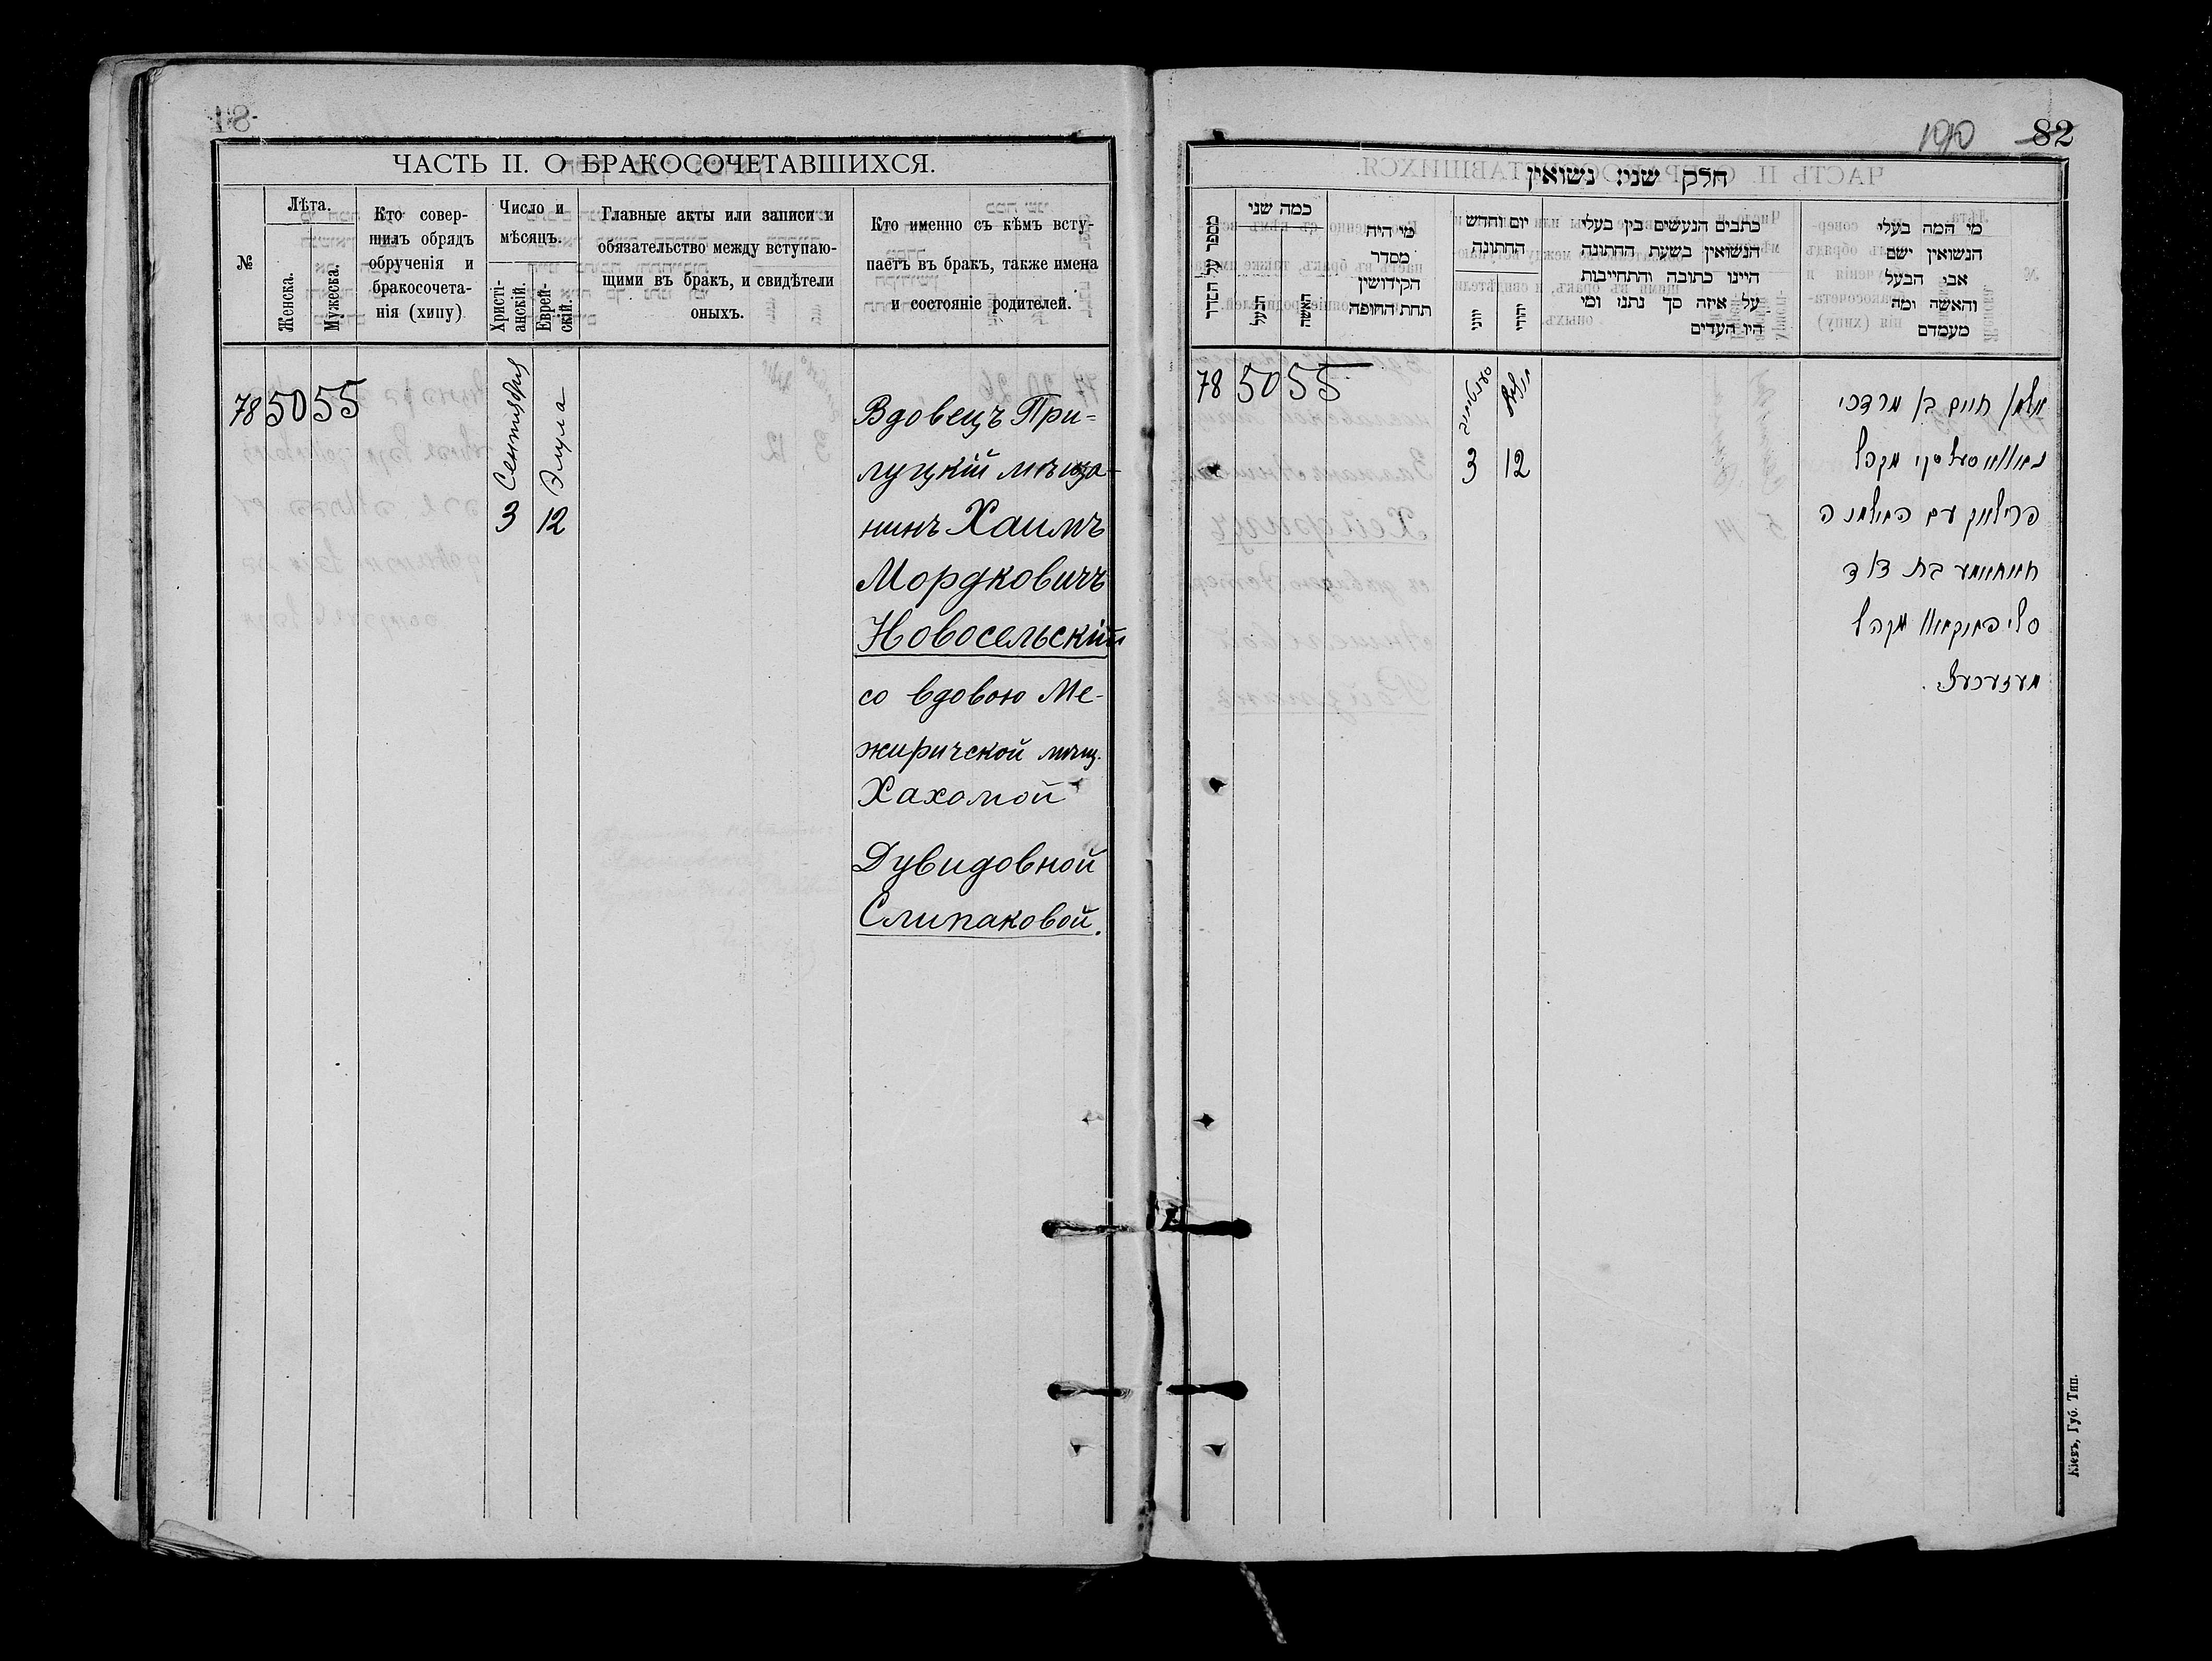 ЧАСТЬ II. О БРАКОСОЧЕТАВШИХСЯ.
№
Лѣта.
Женска.
Мужеска.
Кто совер-
шилъ обрядъ
обрученія и
бракосочета-
нія (хипу)
Число и
мѣсяцъ.
Христі-
анскій.
Еврей-
скій.
Главные акты или записи и
обязательство между вступаю-
щими въ бракъ, и свидѣтели
оныхъ.
Кто именно съ кѣмъ всту-
паетъ въ бракъ, также имена
и состояніе родителей.
78
50
55
Сентября
3
Элула
12
Вдовецъ При=
луцкій мѣща-
нинъ Хаимъ
Мордковичъ
Новосельскій
со вдовою Ме-
жиричской мѣщ.
Хахомой
Дувидовной
Слипаковой.
82
חלק שני: נשואין
מספר על הסדר
כמה שני
הבעל
האשה
מי היה
מסדר
הקידושין
תחת החופה
יום וחדש
החתונה
יוני
יהודי
כתבים הנעשים בין בעלי
הנשואין בשעת החתונה
היינו כתובה והתחייבות
על איזה סך נתנו ומי
היו העדים
מי המה בעלי
הנשואין ושם
אבי הבעל
והאשה ומה
מעמדם
78
50
55
3
12
אלמן חיים בן מרדכי
נאוואסעלסקי מקהל
פרילוק עם האלמנה
בת דוד
סליפאקאוו מקהל
Кіевъ, Губ. Тип.